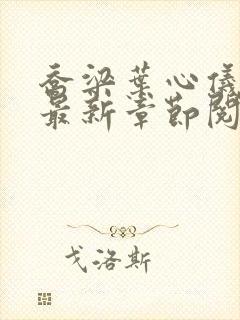 乔梁叶心仪
最新章节阅
戈洛斯